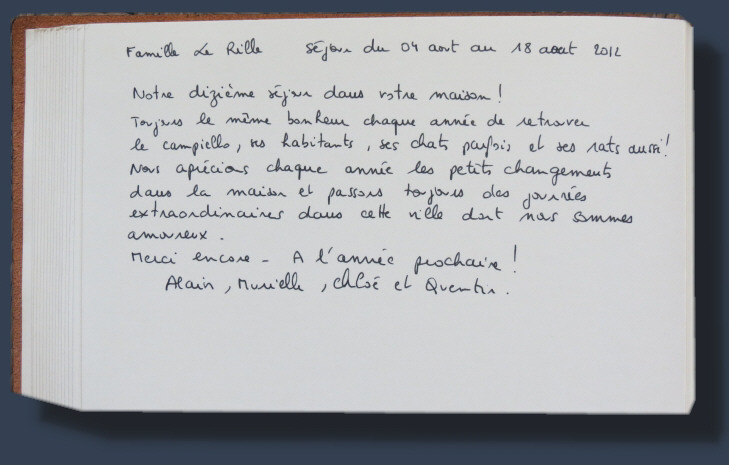 Famille Le Rille séjour du 04 aout au 18 aout 2012
Notre dizième séjour dans votre maison !
Toujours le même bonheur chaque année de retrouver
le campiello, ses habitants, ses chats parfois et ses rats aussi !
Nous apécions chaque année les petits changements
dans la maison et passons toujours des journées
extraordinaires dans cette ville dont nous sommes
amoureux.
Merci encore - A l'année prochaine !
Alain, Murielle, Chloé et Quentin.